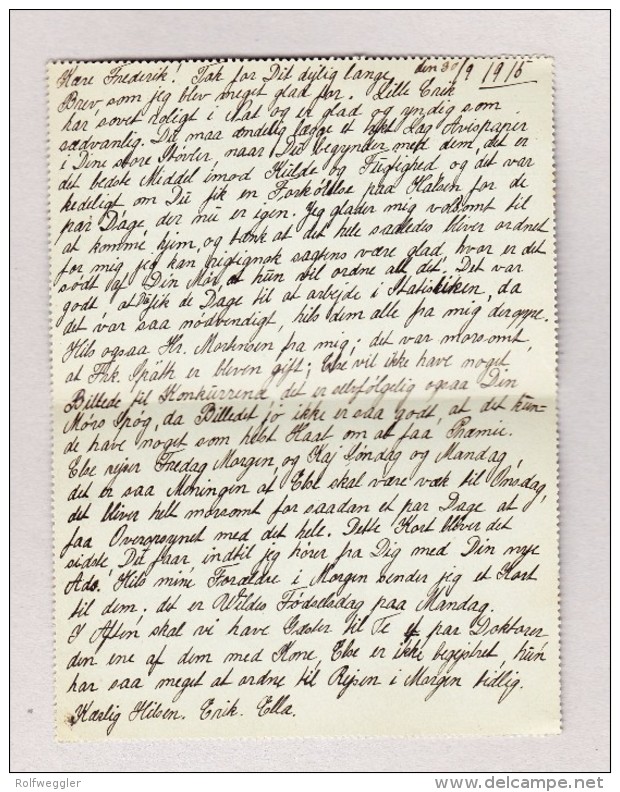 Kære Frederik! Tak for Dit dejlig lange den 30/9 1915
Brev, som jeg blev meget glad for. Lille Erik
har sovet roligt i Nat og er glad og yndig som
sædvanlig. Du maa endelig lægge et tykt Lag Avispapir
i Dine store Støvler, naar Du begynder med dem, det er
det bedste Middel imod Kulde og Fugtighed og det var
kedeligt om Du fik en Forkølelse paa Halsen for de
par Dage, der nu er igen. Jeg glæder mig voldsomt til
at komme hjem, og tænk at det hele saaledes bliver ordnet
for mig, jeg kan rigtignok sagtens være glad, hvor er det
sødt af Din Mor, at hun vil ordne alt det. Det var
godt at Du fik de Dage til at arbejde i Statistiken, da
det var saa nødvendigt, hils dem alle fra mig deroppe.
Hils ogsaa Hr. Mortensen fra mig; det var morsomt,
at Frk. Späth er bleven gift; Else vil ikke have noget
Billede til Konkurrence, det er selvfølgelig ogsaa Din
Mors Spøg, da Billedet jo ikke er saa godt, at det kun-
de have noget som helst Haab om at faa Præmie.
Else rejser Fredag Morgen, og Kaj Søndag og Mandag,
det er saa Meningen at Else skal være væk til Onsdag,
det bliver helt morsomt for saadan et par Dage at
faa Overopsynet med det hele. Dette Kort bliver det
sidste, Du faar, indtil jeg hører fra Dig med Din nye
Ads. Hils mine Forældre i Morgen sender jeg et Kort
til dem. det er Wildes Fødselsdag paa Mandag.
I Aften skal vi have Gæster til Te et par Doktorer
den ene af dem med Kone, Else er ikke begejstret hun
har saa meget at ordne til Rejsen i Morgen tidlig.
Kærlig Hilsen. Erik. Ella.
Rolfweggler
www.delcampe.net